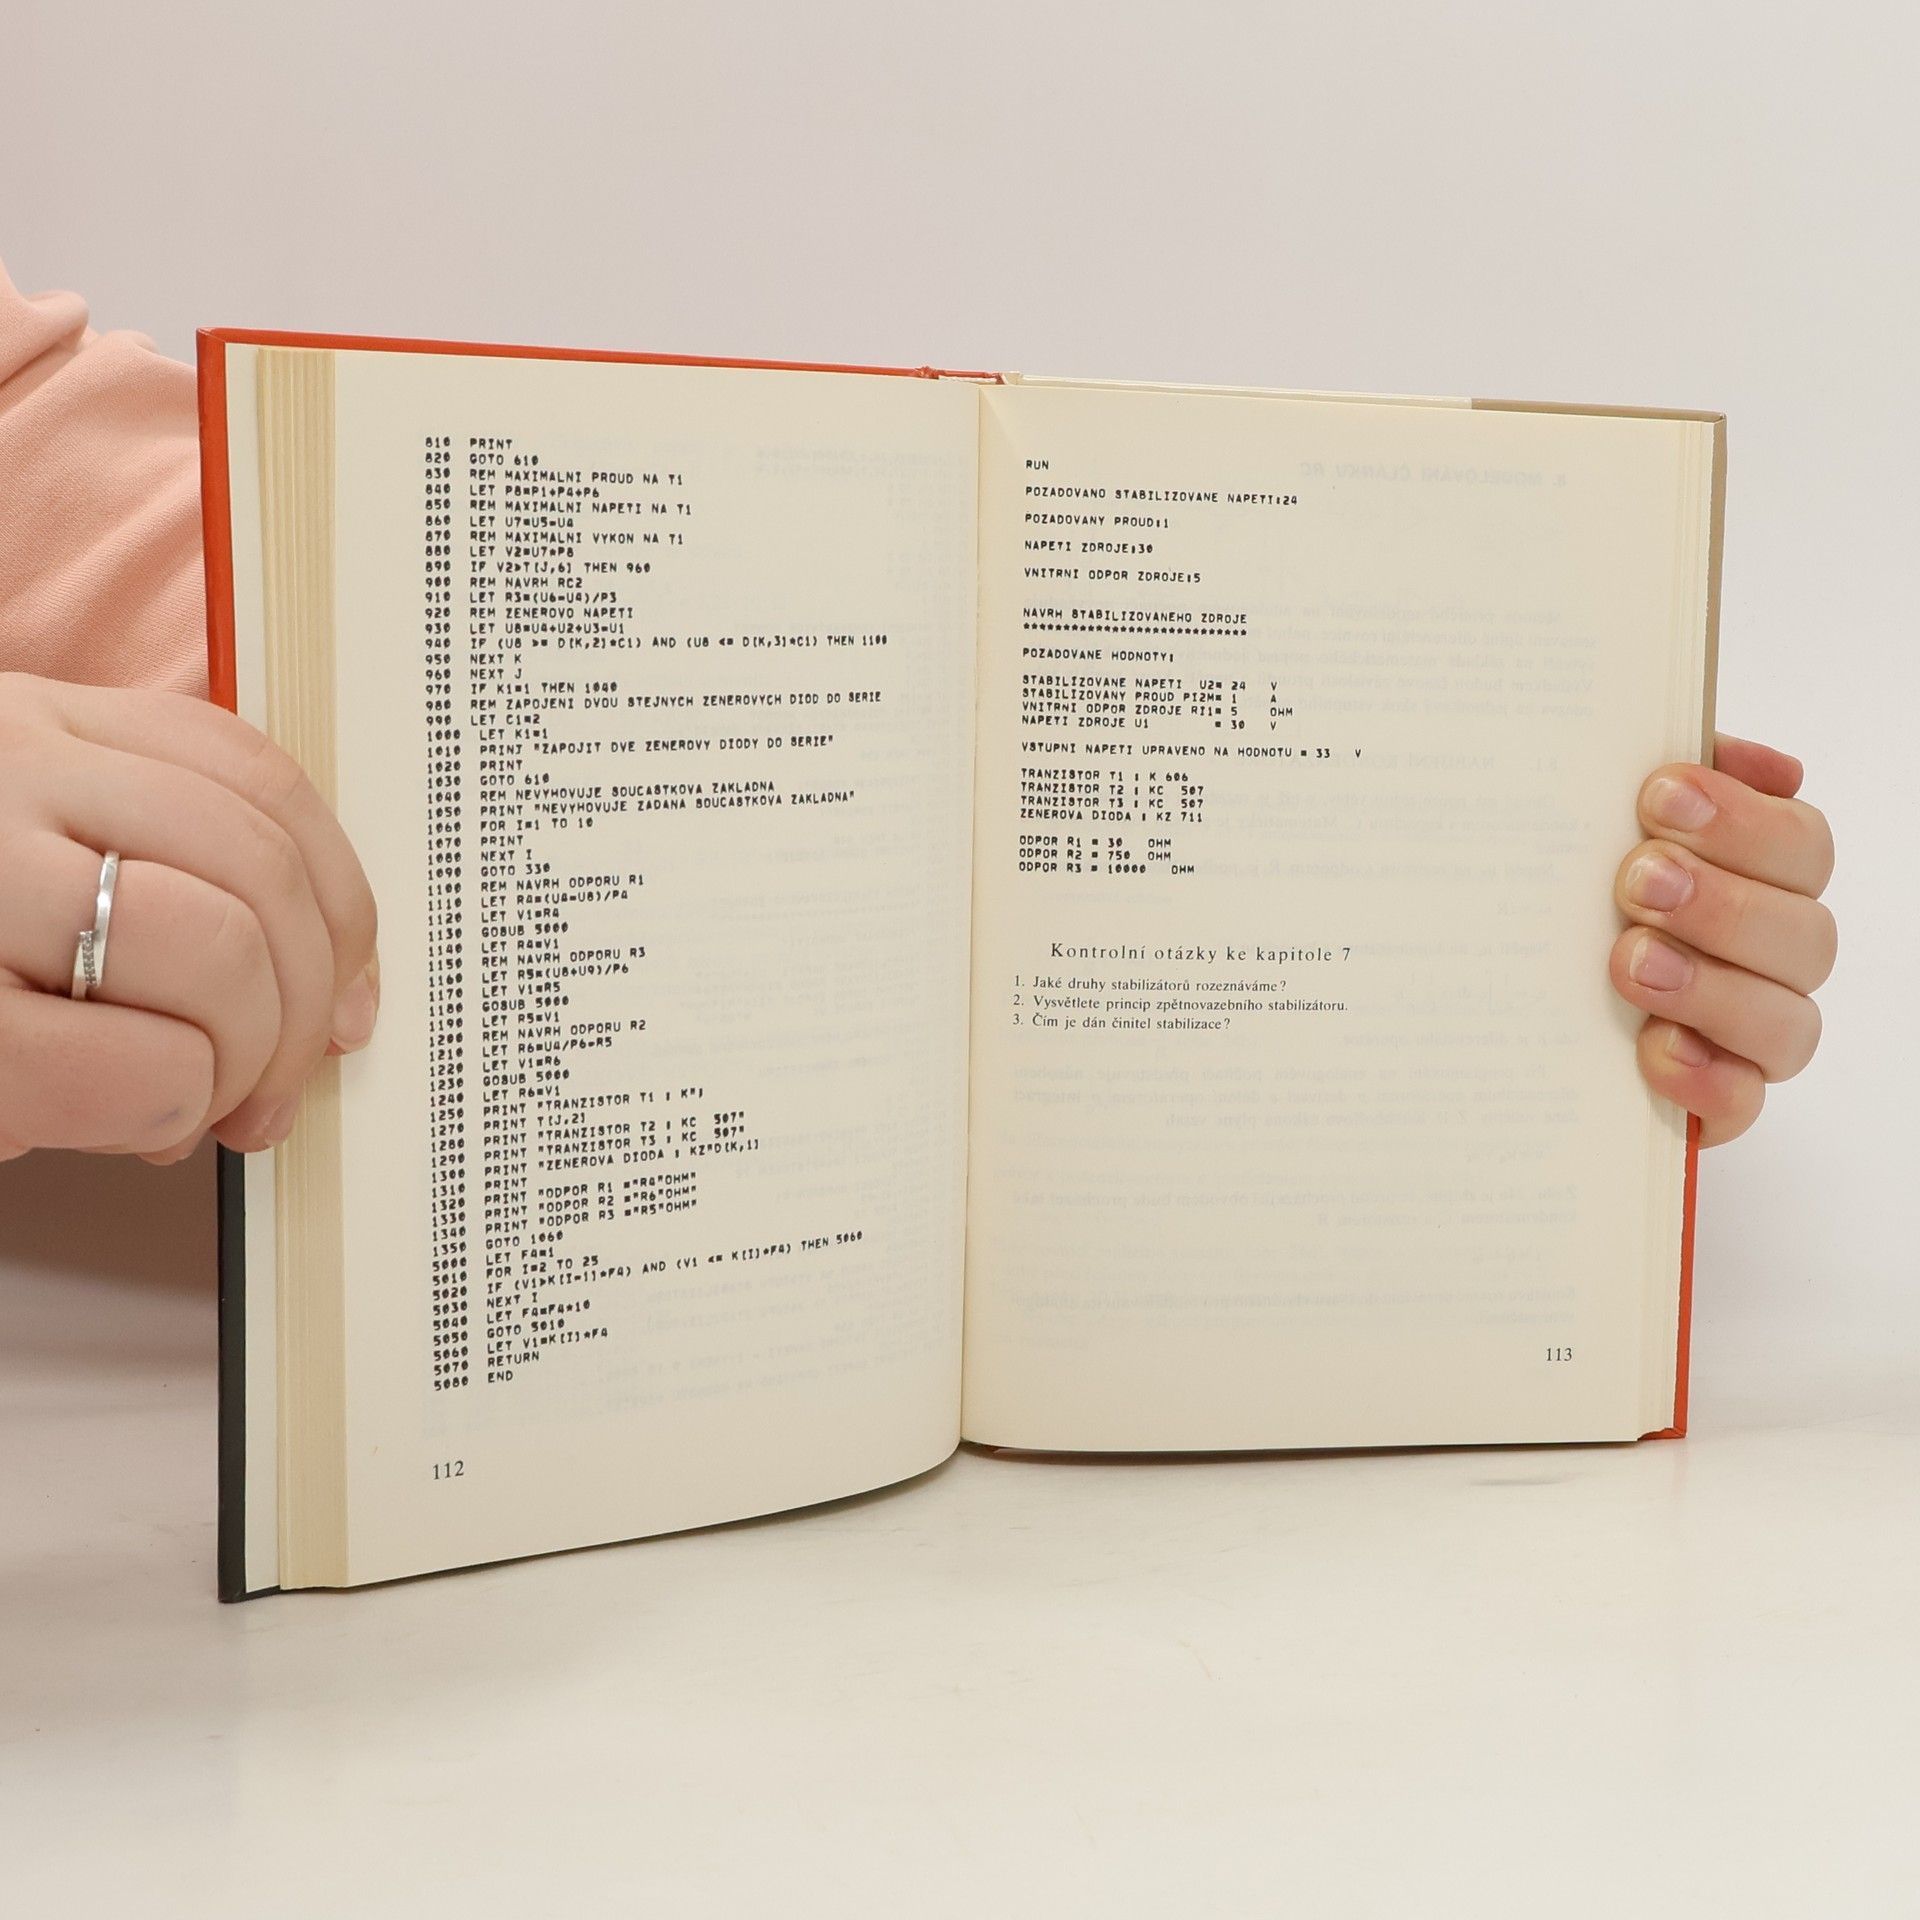 810 PRINT
820 GOTO 610
830 REM MAXIMALNI PROUD NA T1
840 LET P8=P1+P4+P6
850 REM MAXIMALNI NAPETI NA T1
860 LET U7=U5-U4
870 REM MAXIMALNI VYKON NA T1
880 LET V2=U7*P8
890 IF V2>T[J,6] THEN 960
900 REM NAVRH RC2
910 LET R3=(U6-U4)/P3
920 REM ZENEROVO NAPETI
930 LET U8=U4+U2+U3-U1
940 IF (U8 >= D[K,2]*C1) AND (U8 <= D[K,3]*C1) THEN 1100
950 NEXT K
960 NEXT J
970 IF K1=1 THEN 1040
980 REM ZAPOJENI DVOU STEJNYCH ZENEROVYCH DIOD DO SERIE
990 LET C1=2
1000 LET K1=1
1010 PRINT "ZAPOJIT DVE ZENEROVY DIODY DO SERIE"
1020 PRINT
1030 GOTO 610
1040 REM NEVYHOVUJE SOUCASTKOVA ZAKLADNA
1050 PRINT "NEVYHOVUJE ZADANA SOUCASTKOVA ZAKLADNA"
1060 FOR I=1 TO 10
1070 PRINT
1080 NEXT I
1090 GOTO 330
1100 REM NAVRH ODPORU R1
1110 LET R4=(U4-U8)/P4
1120 LET V1=R4
1130 GOSUB 5000
1140 LET R4=V1
1150 REM NAVRH ODPORU R3
1160 LET R5=(U8+U9)/P6
1170 LET V1=R5
1180 GOSUB 5000
1190 LET R5=V1
1200 REM NAVRH ODPORU R2
1210 LET R6=U4/P6-R5
1220 LET V1=R6
1230 GOSUB 5000
1240 LET R6=V1
1250 PRINT "TRANZISTOR T1 : K";
1270 PRINT T[J,2]
1280 PRINT "TRANZISTOR T2 : KC 507"
1290 PRINT "TRANZISTOR T3 : KC 507"
1300 PRINT "ZENEROVA DIODA : KZ"D[K,1]
1310 PRINT
1320 PRINT "ODPOR R1 ="R4"OHM"
1330 PRINT "ODPOR R2 ="R6"OHM"
1340 PRINT "ODPOR R3 ="R5"OHM"
1350 GOTO 1060
5000 LET F4=1
5010 FOR I=2 TO 25
5020 IF (V1>K[I-1]*F4) AND (V1 <= K[I]*F4) THEN 5060
5030 NEXT I
5040 LET F4=F4*10
5050 GOTO 5010
5060 LET V1=K[I]*F4
5070 RETURN
5080 END
112
RUN
POZADOVANO STABILIZOVANE NAPETI:24
POZADOVANY PROUD:1
NAPETI ZDROJE:30
VNITRNI ODPOR ZDROJE:5
NAVRH STABILIZOVANEHO ZDROJE
****************************
POZADOVANE HODNOTY:
STABILIZOVANE NAPETI U2= 24 V
STABILIZOVANY PROUD PI2M= 1 A
VNITRNI ODPOR ZDROJE RI1= 5 OHM
NAPETI ZDROJE U1 = 30 V
VSTUPNI NAPETI UPRAVENO NA HODNOTU = 33 V
TRANZISTOR T1 : K 606
TRANZISTOR T2 : KC 507
TRANZISTOR T3 : KC 507
ZENEROVA DIODA : KZ 711
ODPOR R1 = 30 OHM
ODPOR R2 = 750 OHM
ODPOR R3 = 10000 OHM
Kontrolní otázky ke kapitole 7
1. Jaké druhy stabilizátorů rozeznáváme?
2. Vysvětlete princip zpětnovazebního stabilizátoru.
3. Čím je dán činitel stabilizace?
113